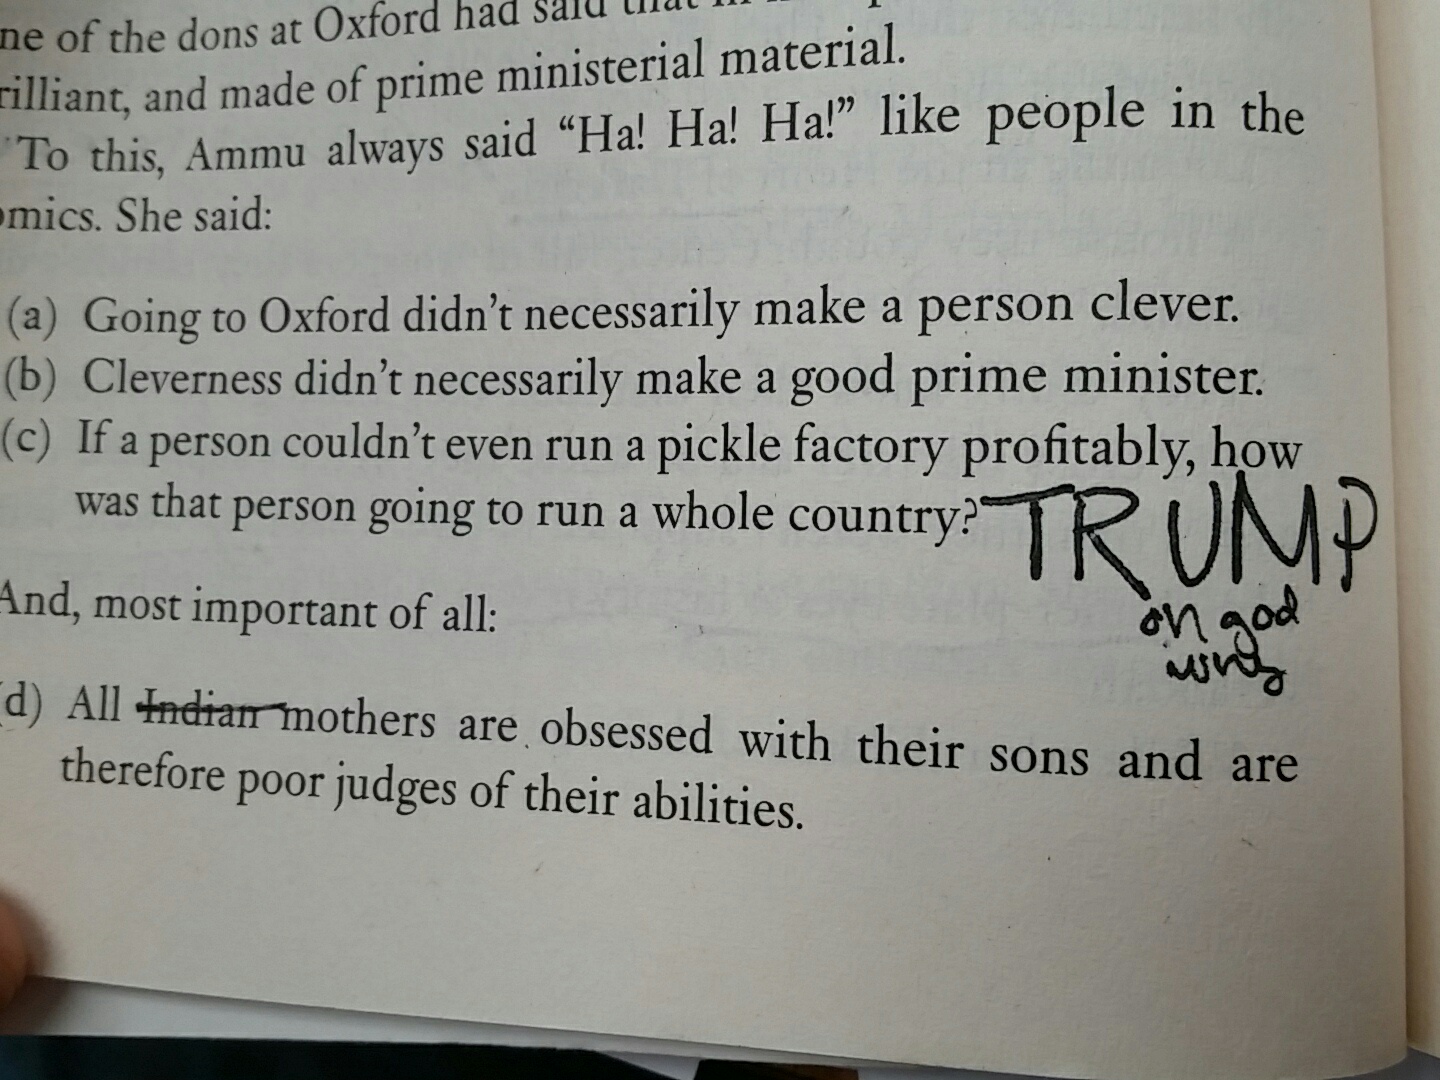 ne of the dons at Oxford had said that in
rilliant, and made of prime ministerial material.
To this, Ammu always said “Ha! Ha! Ha!” like people in the
omics. She said:
(a) Going to Oxford didn’t necessarily make a person clever.
(b) Cleverness didn’t necessarily make a good prime minister.
(c) If a person couldn’t even run a pickle factory profitably, how
was that person going to run a whole country? TRUMP
on god
And, most important of all:
d) All Indian mothers are obsessed with their sons and are
therefore poor judges of their abilities.